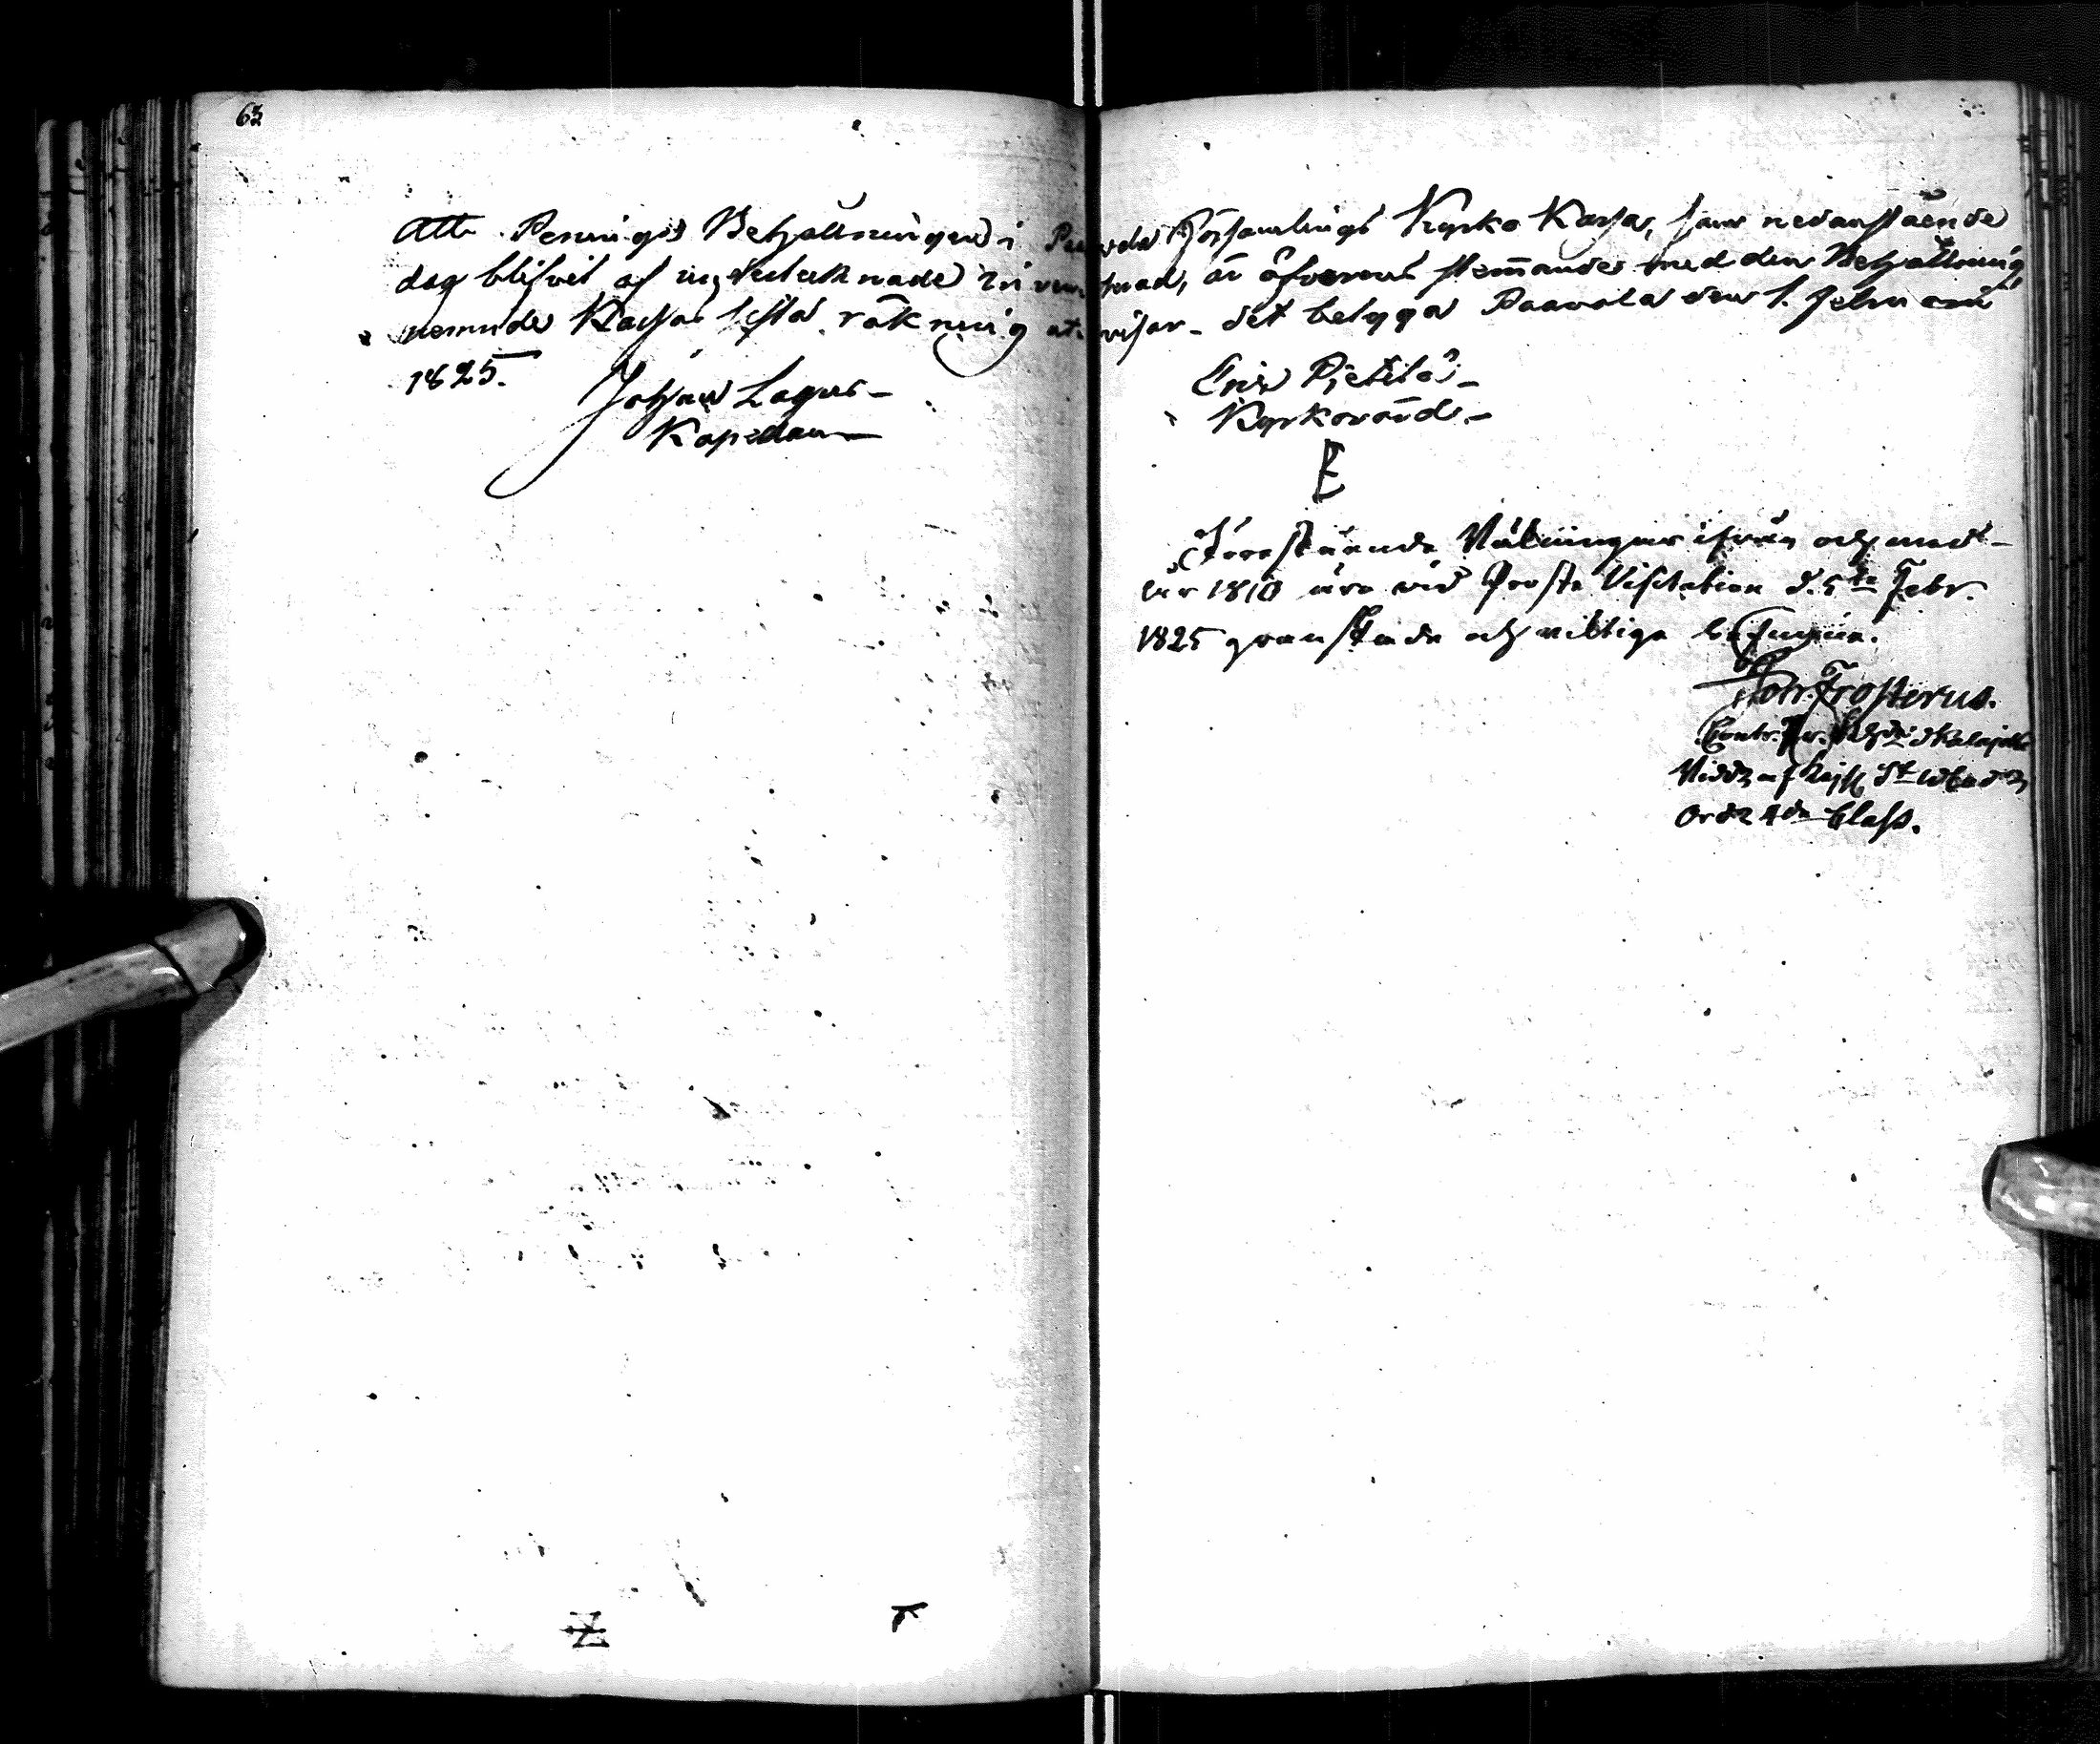 63
Att Pening's Behållningen i Pavola Församlings Kyrko Kassa, som nedanstående
dag blifvit af undertecknade inventerad, är öfverens stemmande med den Behållning,
nemnde Kassas sista räkning utvisar – det betyga Paavola den 1. Febru
1825.
Johan Lagus –
Kapellan
Eric Pietilä –
Kyrkovärd. –
Förestående Räkningar ifrån och med
år 1810 äro vid Prosts Visitation d. 5te Febr.
1825 granskade och riktige befundne.
Frosterus.
Contr. Pr.
Ridd. af Kejs St Wlad
Ord 4de Class.